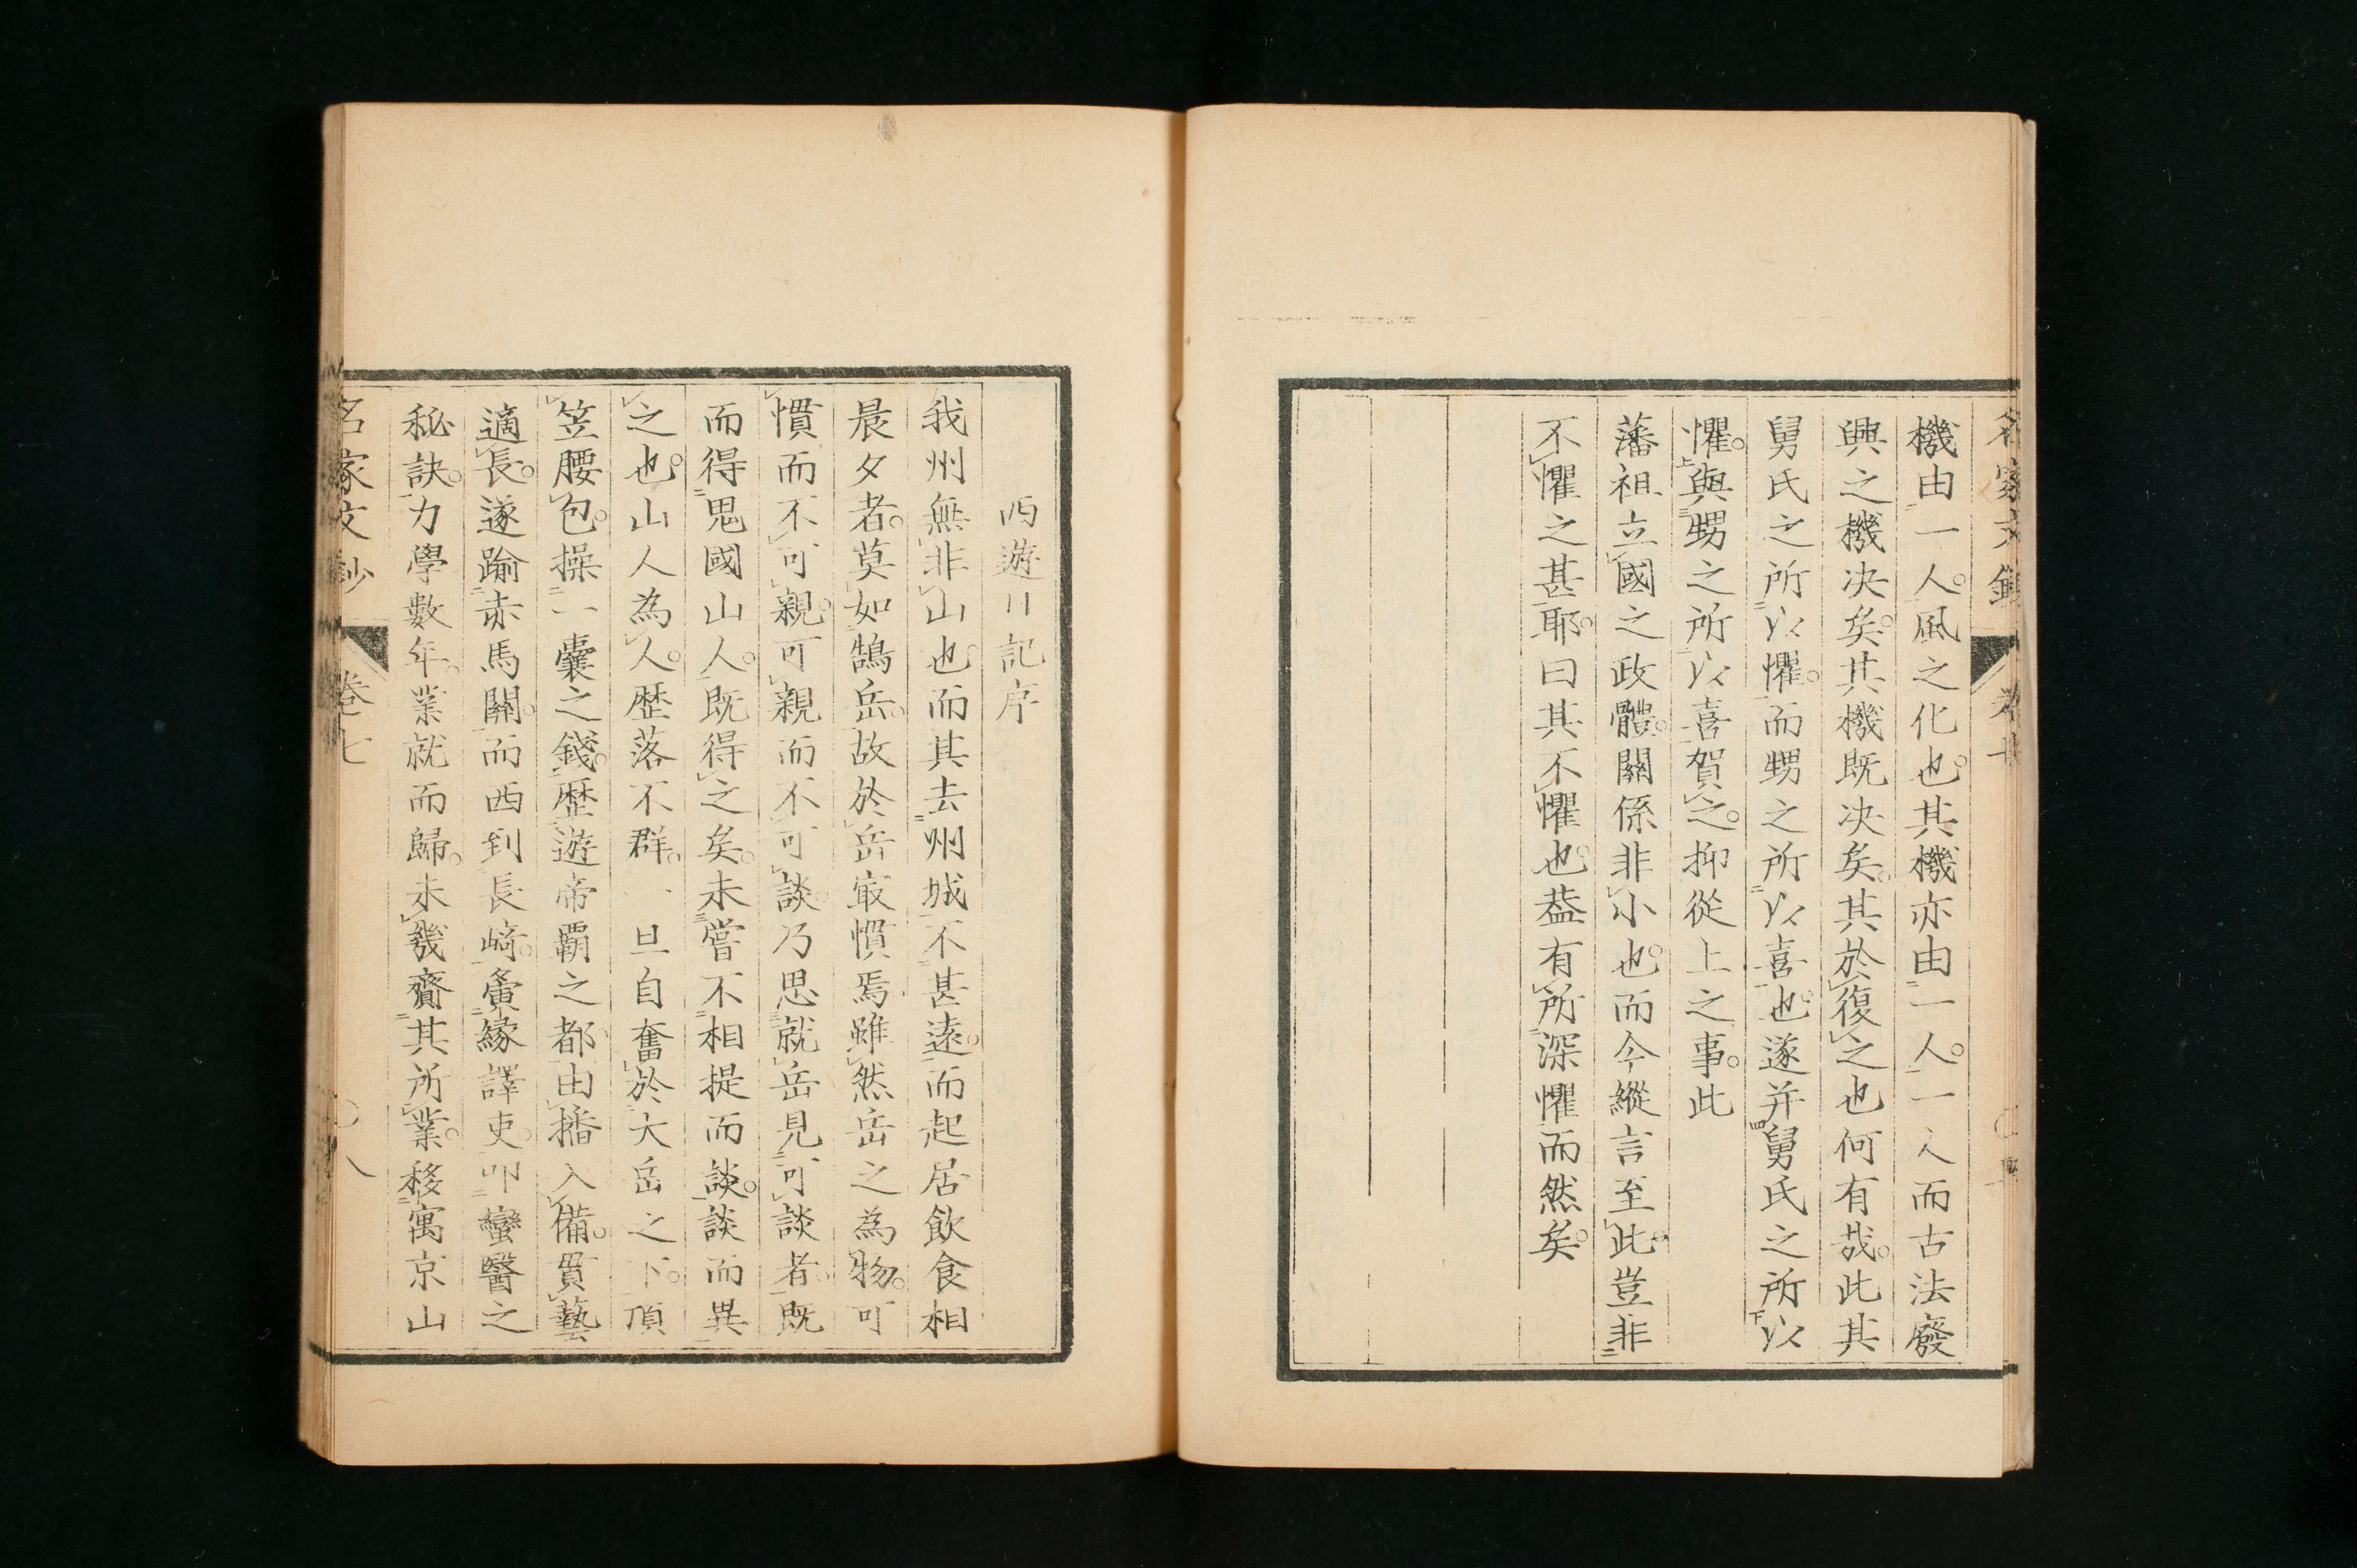 機由一人。風之化也。其機亦由一人。一人而古法廢
興之機决矣。其機既决矣。其於復之也何有哉。此其
舅氏之所以懼。而甥之所以喜也。遂并舅氏之所以
懼。與甥之所以喜賀之。抑從上之事。此
藩祖立國之政體。關係非小也。而今縱言至此。豈非
不懼之甚耶。曰其不懼也。葢有所深懼而然矣。
西遊日記序
我州無非山也。而其去州城不甚遠。而起居飲食相
晨夕者。莫如鵠岳。故於岳㝡慣焉。雖然岳之為物。可
慣而不可親。可親而不可談。乃思就岳見可談者。既
而得鬼國山人。既得之矣。未嘗不相提而談。談而異
之也。山人為人。歷落不群。一旦自奮於大岳之下。頂
笠腰包。操一囊之錢。歷遊帝覇之都。由播入備。買藝
適長。遂踰赤馬關。而西到長崎。夤緣譯吏。叩蠻醫之
秘訣。力學數年。業就而歸。未幾齎其所業。移寓京山
名家文鈔
卷七
〇八